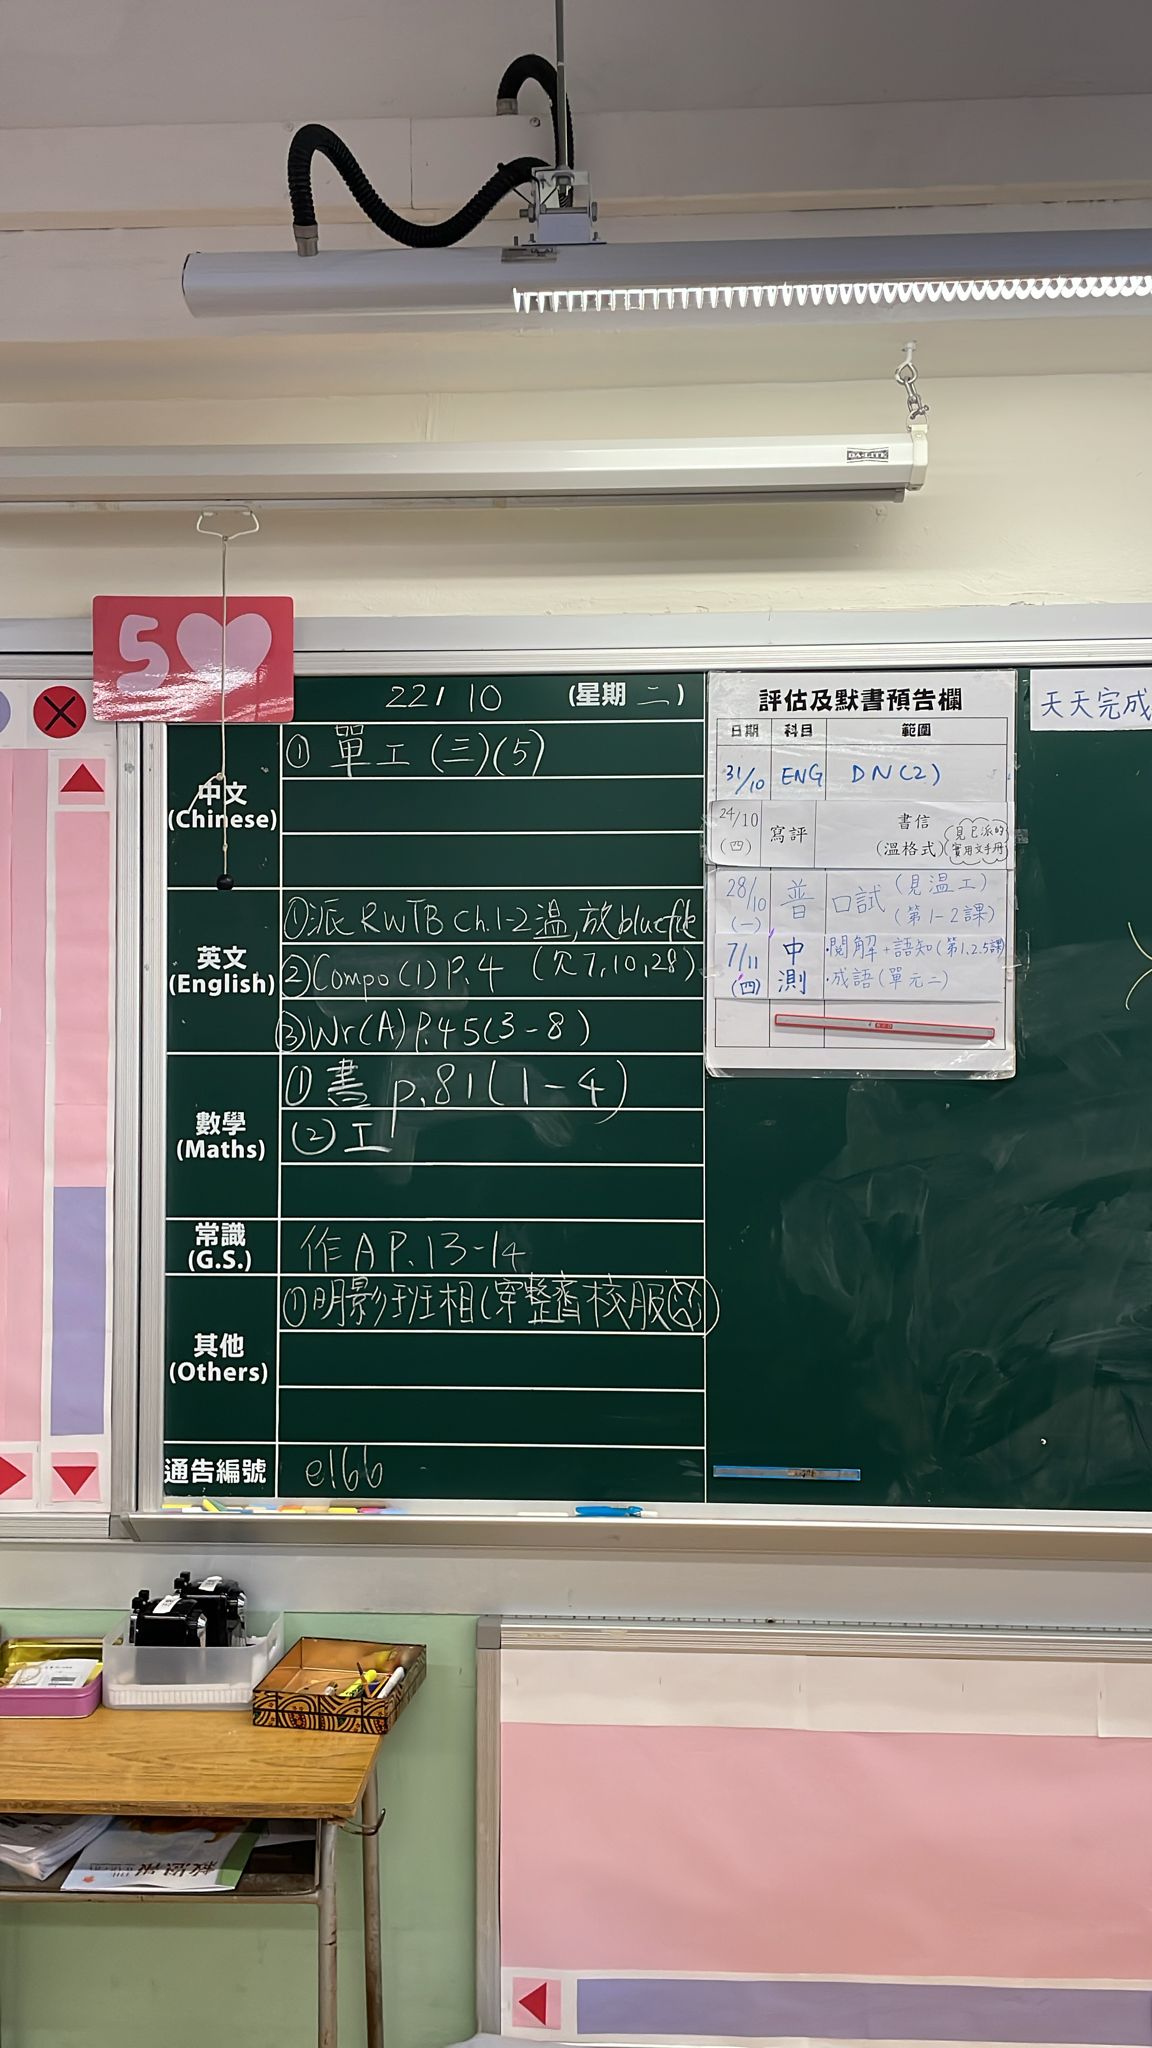 DA-LITE
5
22/10 (星期 二)
中文
(Chinese)
① 單工(三)(5)
英文
(English)
①派 RWTB Ch.1-2 温, 放 bluefile
②Compo(1) P.4 (欠7,10,28)
③Wr(A) P.45(3-8)
數學
(Maths)
① 書 p.81(1-4)
(2) 工
常識
(G.S.)
作A P.13-14
其他
(Others)
①明影班相(穿整齊校服)
通告編號
e166
評估及默書預告欄
日期 科目 範圍
31/10 ENG DN(2)
24/10 (四) 寫評 書信
(溫格式) 見已派的實用文手冊
28/10 (一) 普 口試 (見溫工)
(第1-2課)
7/11 (四) 中測 ·閱解+語知(第1,2,5課)
·成語(單元二)
天天完成